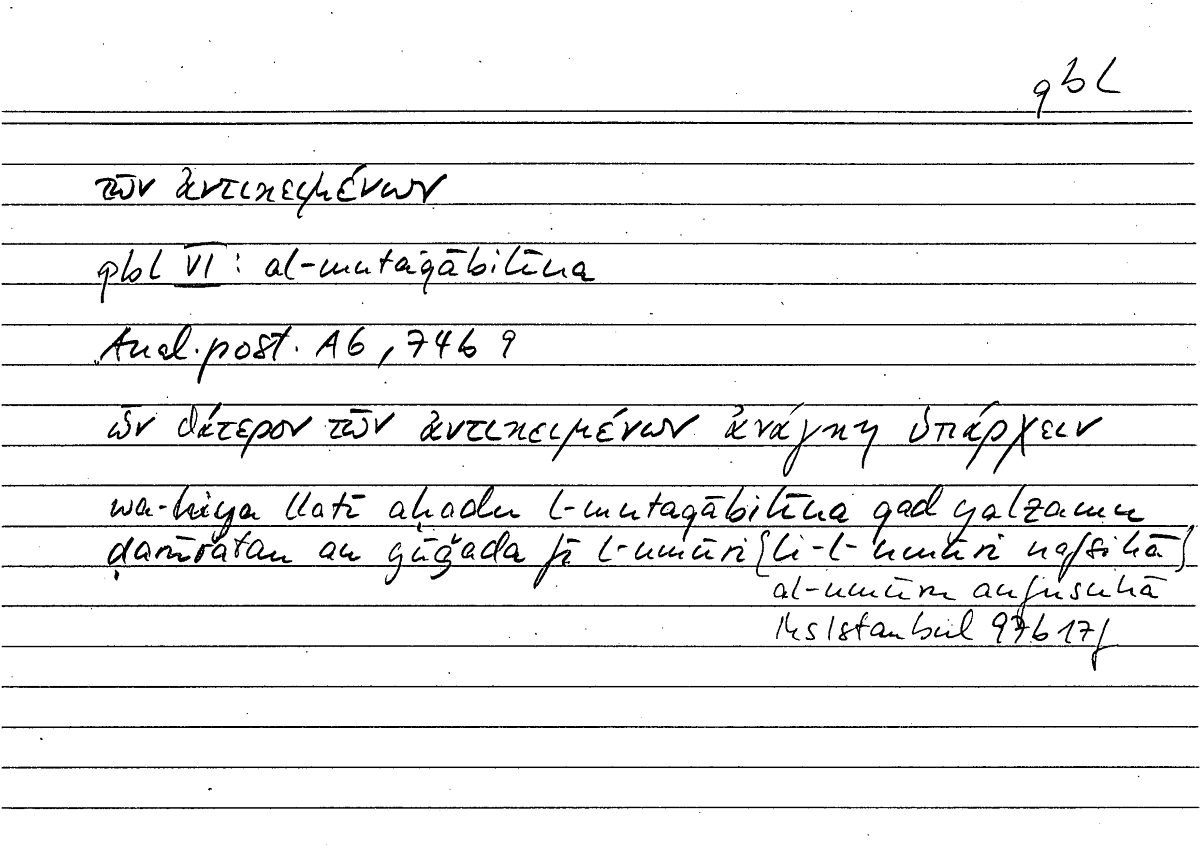 qbl
τῶν ἀντικειμένων
qbl VI : al-mutaqābilīna
Anal. post. A6, 74b 9
ὧν θάτερον τῶν ἀντικειμένων ἀνάγκη ὑπάρχειν
wa-hiya llatī aḥadu l-mutaqābilīna qad yalzamu
ḍarūratan an yūǧada fī l-umūri {li-l-umūri nafsihā}
al-umūru anfusuhā
Ms Istanbul 97b 17f